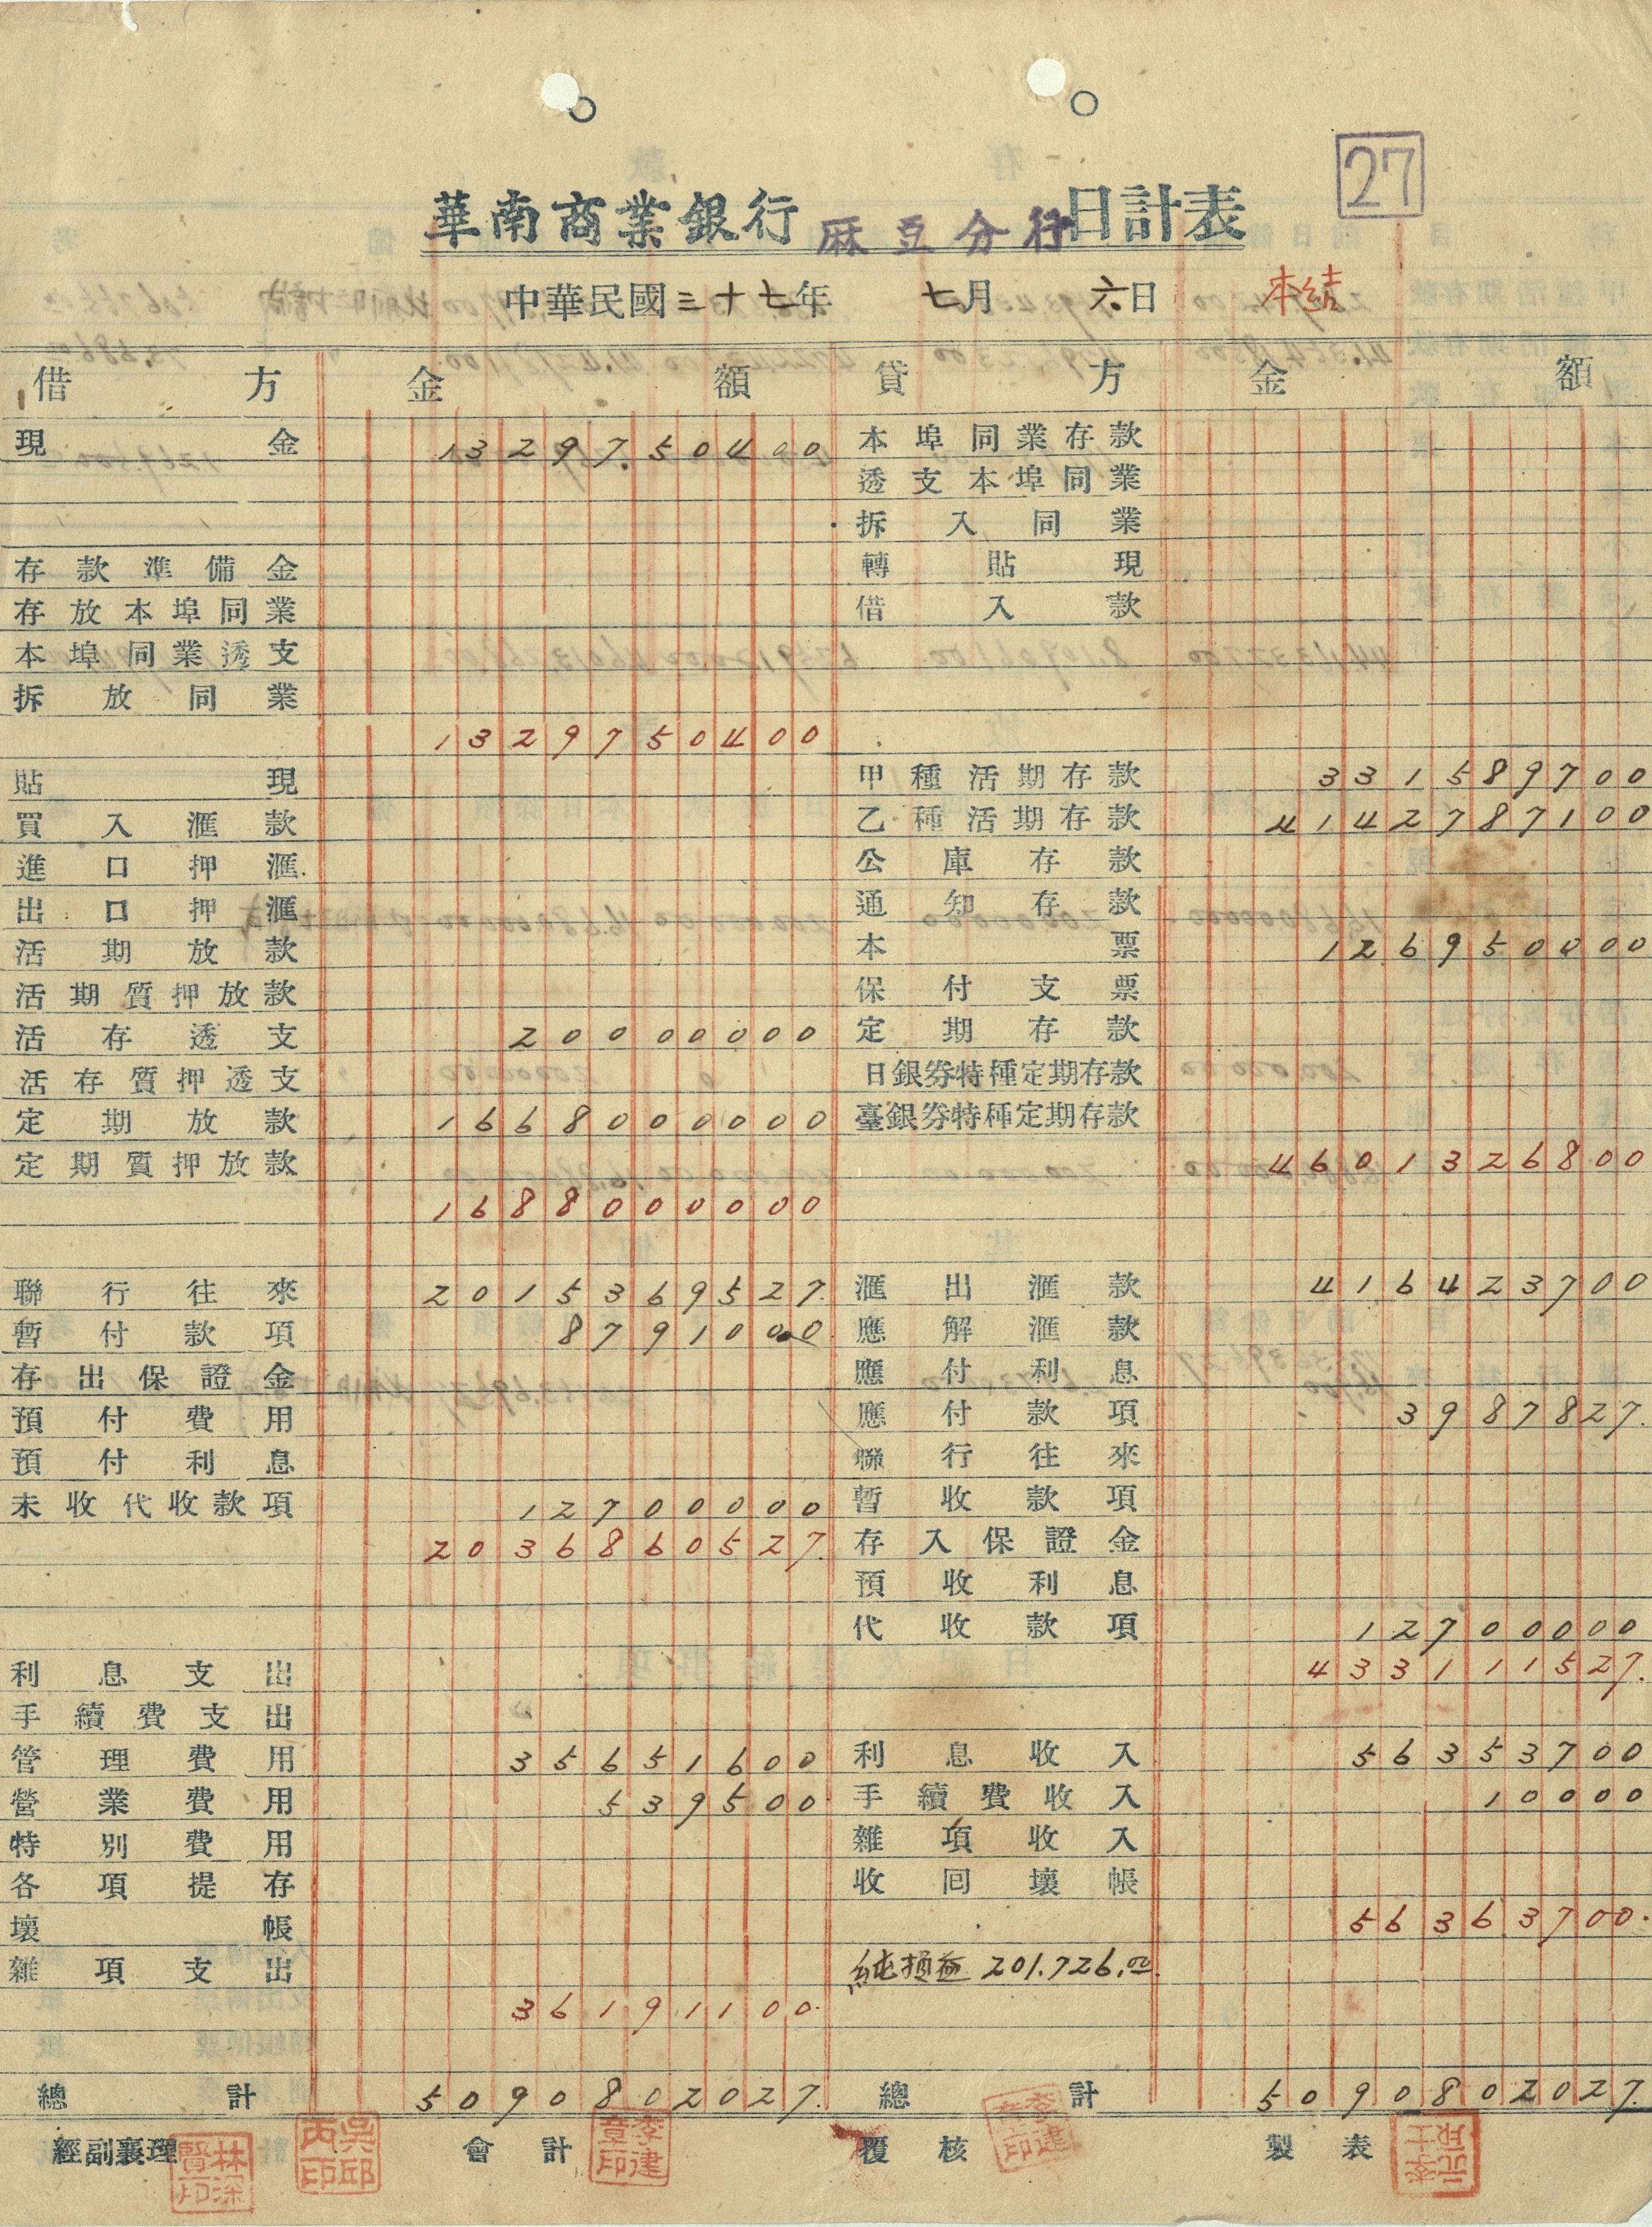 27
華南商業銀行 麻豆分行 日計表
中華民國三十七年 七月 六日 本結
借方 金額 貸方 金額
現金 1329750400 本埠同業存款
透支本埠同業
拆入同業
存款準備金 轉貼現
存放本埠同業 借入款
本埠同業透支
拆放同業
1329750400
貼現 甲種活期存款 331589700
買入滙款 乙種活期存款 4142787100
進口押滙 公庫存款
出口押滙 通知存款
活期放款 本票 126950000
活期質押放款 保付支票
活存透支 20000000 定期存款
活存質押透支 日銀券特種定期存款
定期放款 1668000000 臺銀券特種定期存款
定期質押放款 4601326800
1688000000
聯行往來 2015369527 滙出滙款 416423700
暫付款項 8791000 應解滙款
存出保證金 應付利息
預付費用 應付款項 3987827
預付利息 聯行往來
未收代收款項 12700000 暫收款項
2036860527 存入保證金
預收利息
代收款項 12700000
利息支出 433111527
手續費支出
管理費用 35651600 利息收入 56353700
營業費用 539500 手續費收入 10000
特別費用 雜項收入
各項提存 收回壞帳
壞帳 56363700
雜項支出 純損益 201.726.00
36191100
總計 5090802027 總計 5090802027
經副襄理 林深賢印 吳邱丙印 會計 李建章印 覆核 李建章印 製表